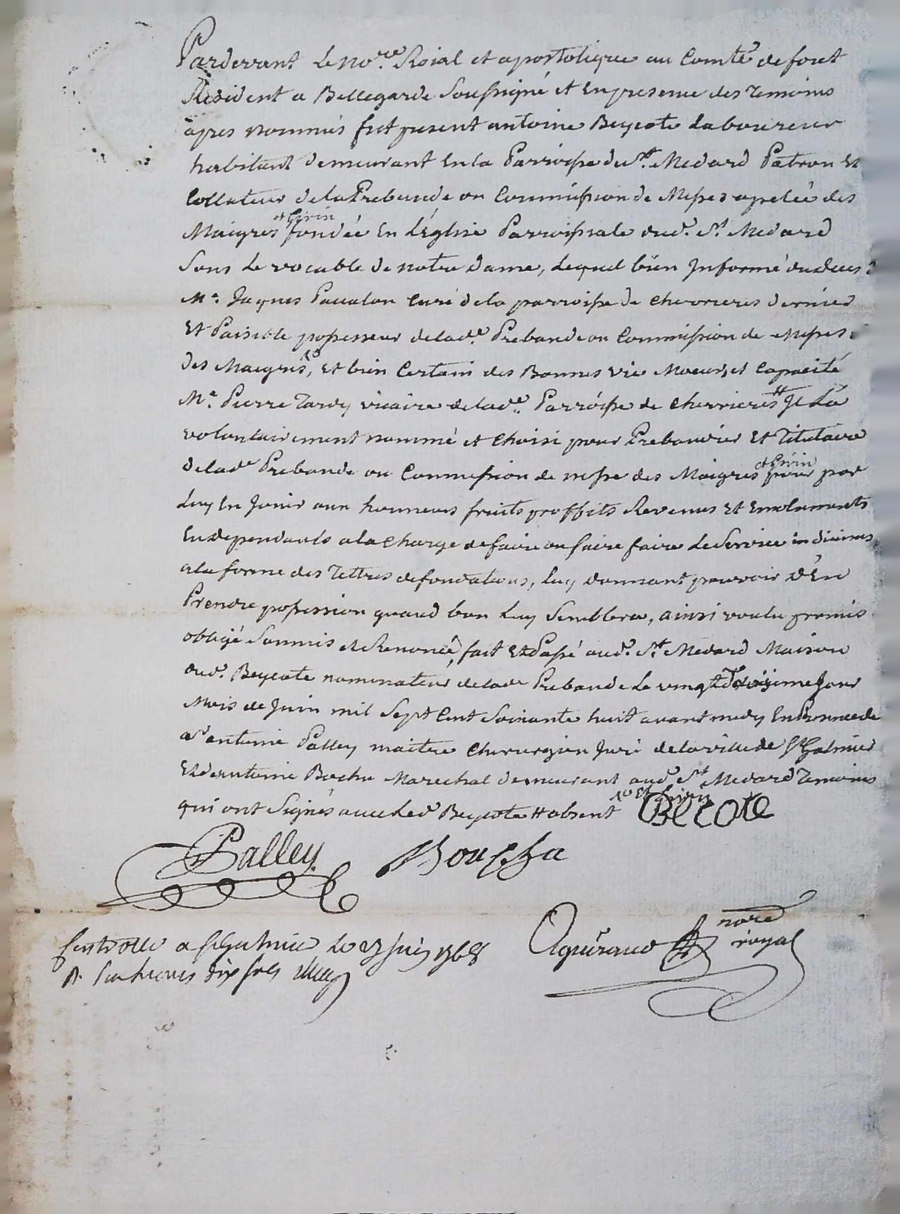 Pardevant Le no.re Roial et apostolique au Comté de foret
Résident a Bellegarde Soussigné et En presence des Temoins
apres nommés fut present antoine Beycote Laboureur
habitant demeurant En la Parroisse de St. Medard Patron Et
Collateur de la Prebande ou Commission de Messes apelée des
Maigres et Girin fondée En L'église Parroissiale dud. St. Medard
Sous Le vocable de notre dame, Lequel bien Informé du deces
Mre. Jaques Pacalon Curé de la parroisse de Chevrieres dernier
Et Paisible possesseur de lade. Prebande ou Commission de Messes
des Maigres, et bien Certain des Bonnes vie Moeurs, et Capacité
Mre. Pierre Tardy vicaire de lade. Parroisse de Chevrieres Il La
volontairement nommé et Choisi pour Prebandier Et Titulaire
de lade Prebande ou Commission de messe des Maigres et Girin pour par
Luy En Jouir aux honneurs fruits proffits Revenus Et Emoluments
En dependants a la Charge de faire ou faire faire Le Service
a la forme des Lettres de fondations, Luy donnant pouvoir d'En
Prendre possession quand bon Luy Semblera, ainsi voulu promis
obligé Soumis et Renoncé, fait Et Passé aud. St. Medard Maison
dud. Beycote nominateur de lade Prebande Le vingt Jour
Mois de Juin mil Sept Cent Soixante huit avant midy En Presence de
Sr antoine Palley maitre Chirurgien Juré de la ville de St Galmier
Et d'antoine Marechal demeurant aud. St Medard Temoins
qui ont Signés avec Led. Beycote
Becote
Palley
nore royal
Controllé a St Galmier Le Juin 1768
R. dix sols